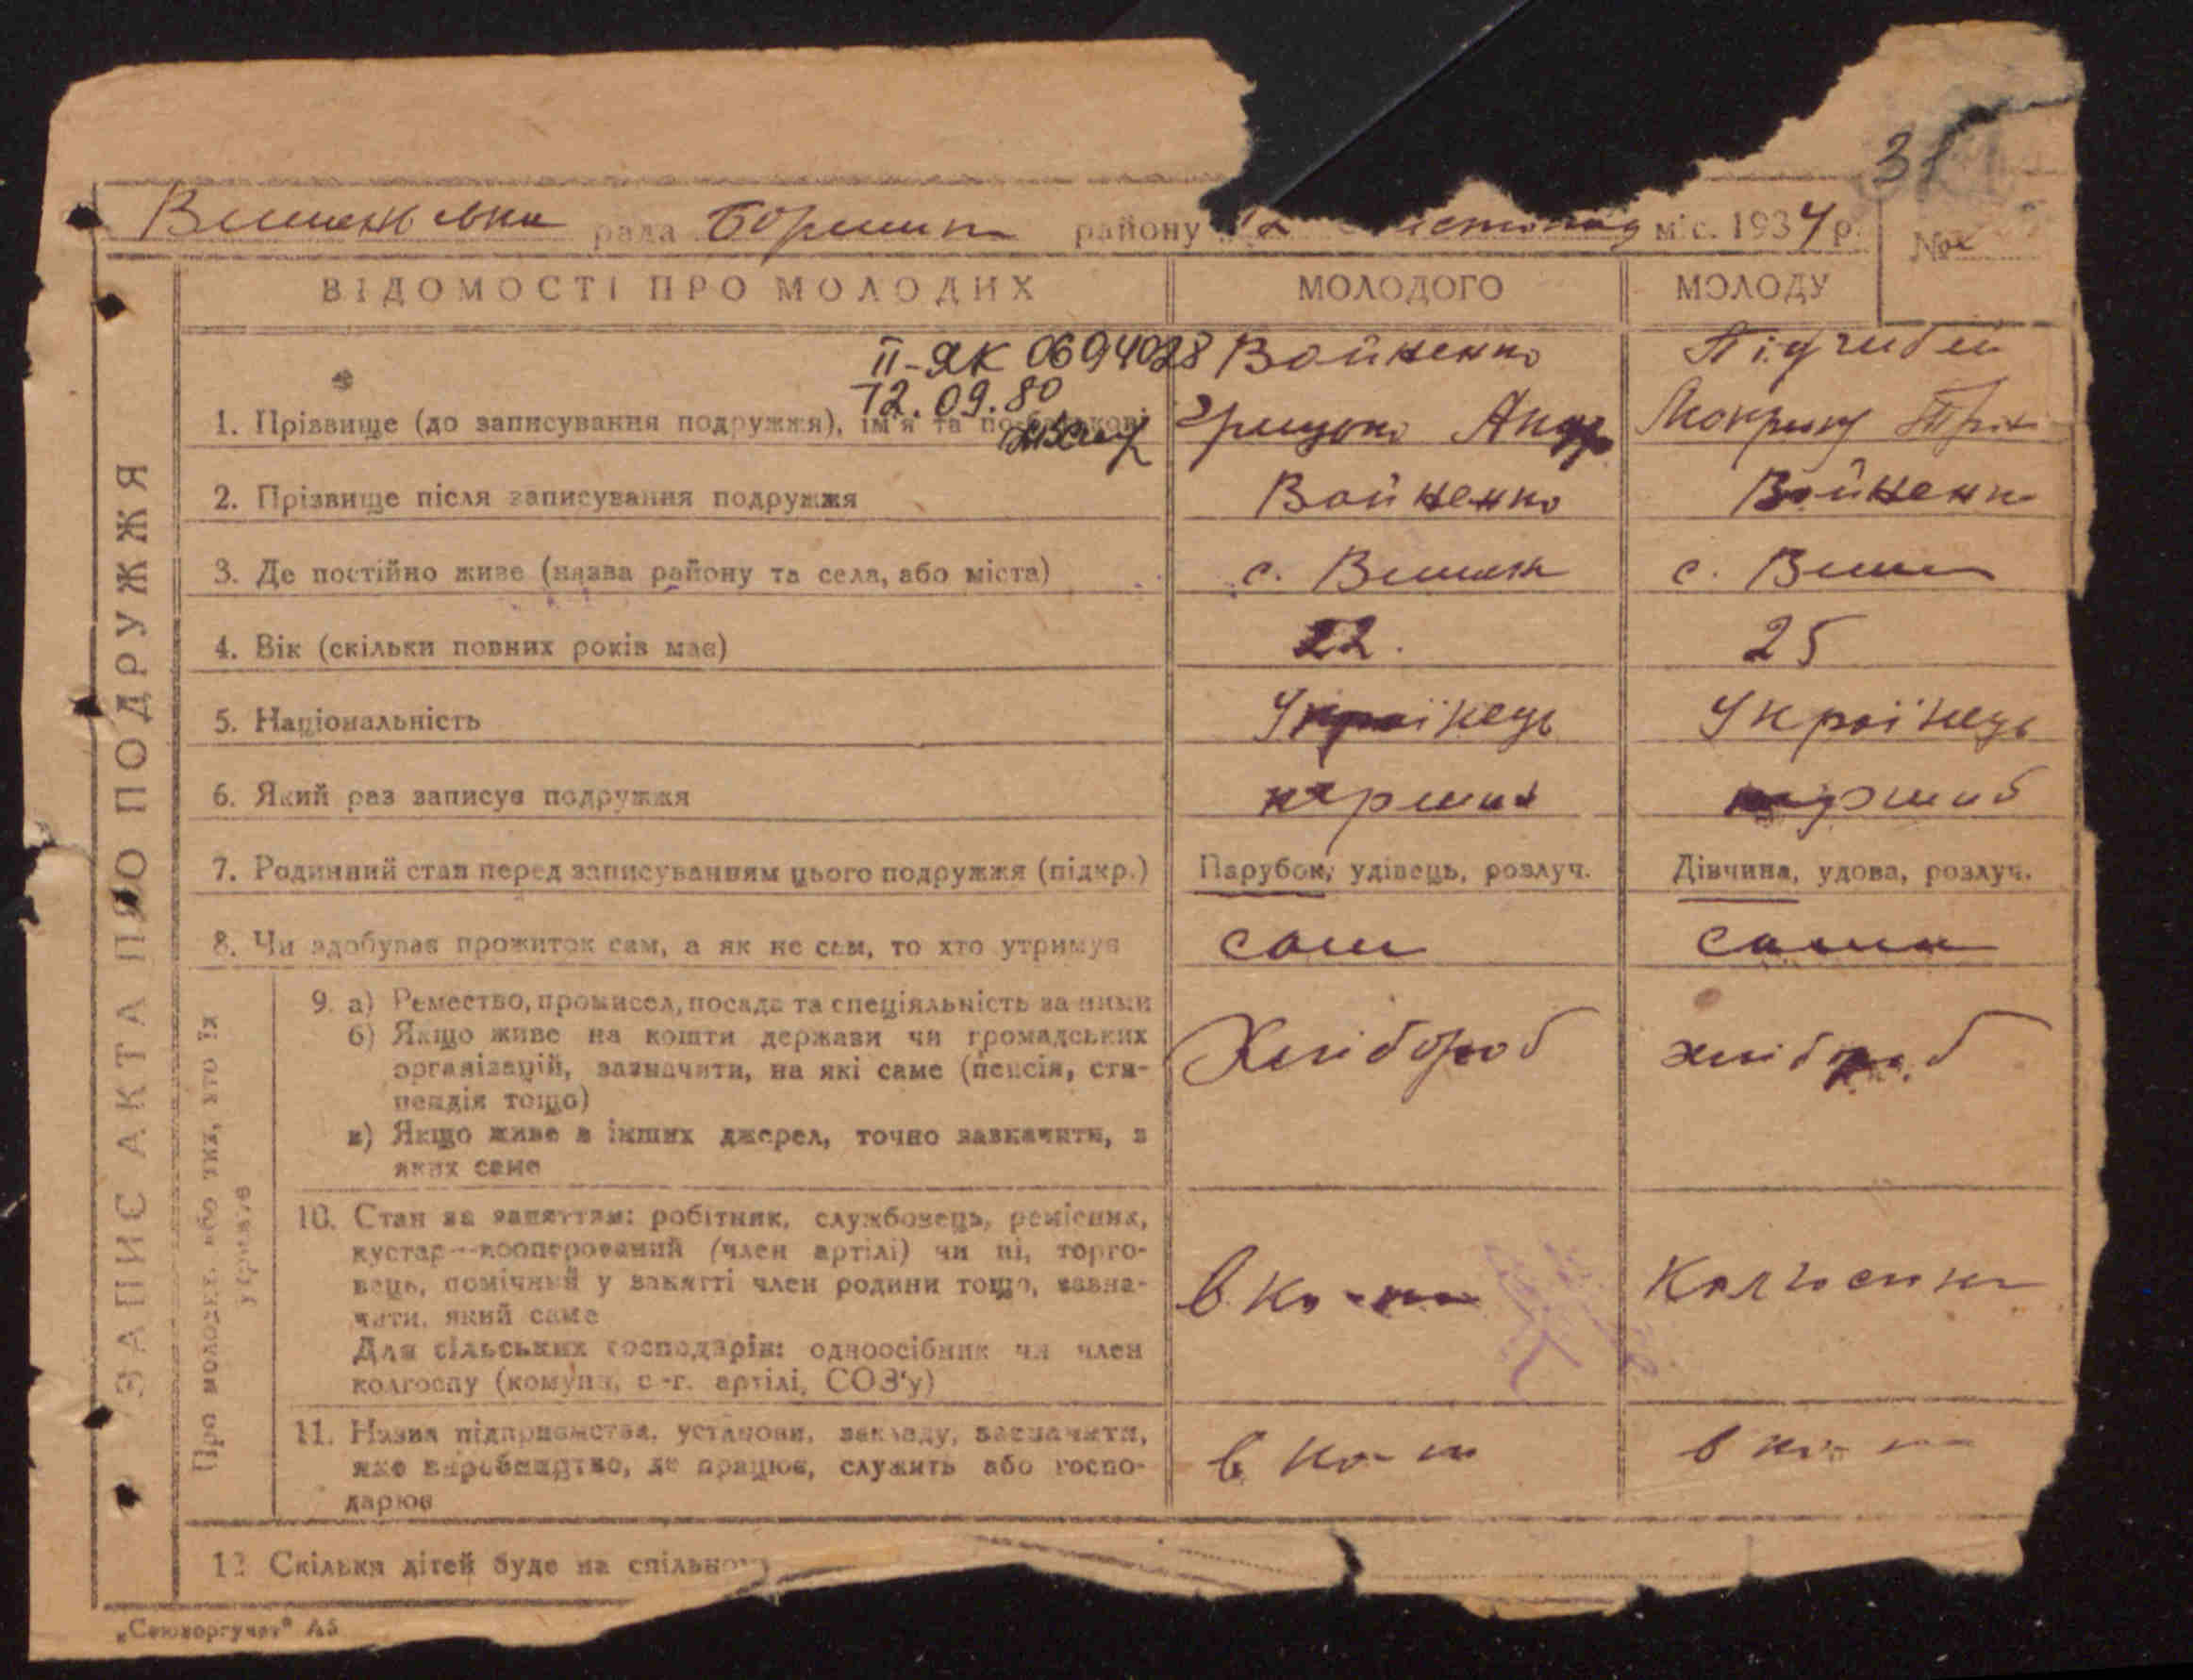 31
рада Бориш району міс. 1934 р.
№
ЗАПИС АКТА ПРО ПОДРУЖЖЯ
ВІДОМОСТІ ПРО МОЛОДИХ МОЛОДОГО МОЛОДУ
II-ЯК 0694028 Войненко Підгибей
12.09.80
1. Прізвище (до записування подружжя), ім'я та по батькові Грицько Андр Мокрину
2. Прізвище після записування подружжя Войненко Войненк
3. Де постійно живе (назва району та села, або міста) с. Вишень с. Вишен
4. Вік (скільки повних років має) 22. 25
5. Національність Українець Українець
6. Який раз записує подружжя перший
7. Родинний стан перед записуванням цього подружжя (підкр.) Парубок, удівець, розлуч. Дівчина, удова, розлуч.
8. Чи здобував прожиток сам, а як не сам, то хто утримує сам сама
Про молодих, або тих, хто їх утримує
9. а) Ремество, промисел, посада та спеціяльність за ними Хлібороб хлібороб
б) Якщо живе на кошти держави чи громадських
організацій, зазначити, на які саме (пенсія, сти-
пендія тощо)
в) Якщо живе з інших джерел, точно зазначити, з
яких саме
10. Стан за заняттям: робітник, службовець, ремісник,
кустар—кооперований (член артілі) чи ні, торго-
вець, помічний у занятті член родини тощо, зазна-
чити, який саме
Для сільських господарів: одноосібник чи член
колгоспу (комуна, с.-г. артілі, СОЗ'у)
11. Назва підприємства, установи, закладу, зазначити,
яке виробництво, де працює, служить або госпо-
дарює
12 Скільки дітей буде на спільном
„Союзоргучет" А5